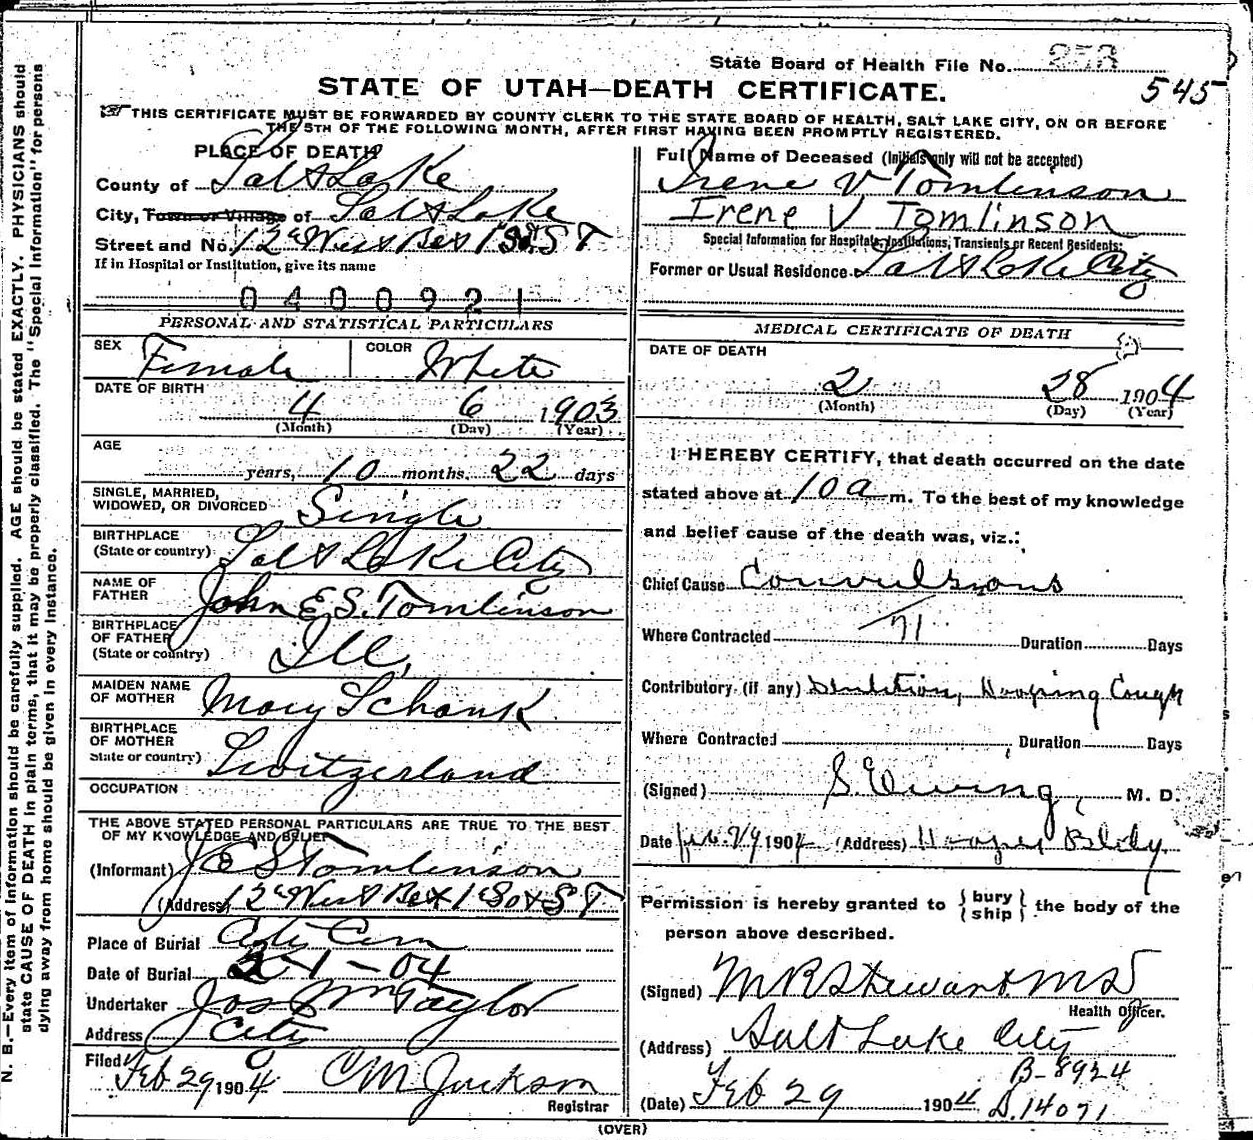 State Board of Health File No. 258
545
STATE OF UTAH—DEATH CERTIFICATE.
☞ THIS CERTIFICATE MUST BE FORWARDED BY COUNTY CLERK TO THE STATE BOARD OF HEALTH, SALT LAKE CITY, ON OR BEFORE
THE 5TH OF THE FOLLOWING MONTH, AFTER FIRST HAVING BEEN PROMPTLY REGISTERED.
PLACE OF DEATH
County of Salt Lake
City, Town or Village of Salt Lake
Street and No. 12th West Bet 1st So. ST
If in Hospital or Institution, give its name
0400921
PERSONAL AND STATISTICAL PARTICULARS
SEX Female COLOR White
DATE OF BIRTH
4 6 1903
(Month) (Day) (Year)
AGE
years, 10 months, 22 days
SINGLE, MARRIED,
WIDOWED, OR DIVORCED Single
BIRTHPLACE
(State or country) Salt Lake City
NAME OF
FATHER John E S. Tomlinson
BIRTHPLACE
OF FATHER
(State or country) Ill.
MAIDEN NAME
OF MOTHER Mary Schank
BIRTHPLACE
OF MOTHER
State or country) Switzerland
OCCUPATION
THE ABOVE STATED PERSONAL PARTICULARS ARE TRUE TO THE BEST
OF MY KNOWLEDGE AND BELIEF
(Informant) J E S Tomlinson
(Address) 12th West Bet 1st So ST
Place of Burial City Cem
Date of Burial 2-1-04
Undertaker Jos Wm Taylor
Address City
Filed Feb 29 1904 C M Jackson
Registrar
Full Name of Deceased (Initials only will not be accepted)
Irene V Tomlinson
Irene V Tomlinson
Special Information for Hospitals, Institutions, Transients or Recent Residents:
Former or Usual Residence Salt Lake City
MEDICAL CERTIFICATE OF DEATH
DATE OF DEATH
2 28 1904
(Month) (Day) (Year)
I HEREBY CERTIFY, that death occurred on the date
stated above at 10 a m. To the best of my knowledge
and belief cause of the death was, viz.:
Chief Cause Convulsions
71
Where Contracted Duration Days
Contributory (if any) Dentition, Hooping Cough
Where Contracted Duration Days
(Signed) S. Ewing, M. D.
Date Feb. 29 1904 (Address) Hooper Bldg.
Permission is hereby granted to { bury ship } the body of the
person above described.
(Signed) M R Stewart M D
Health Officer.
(Address) Salt Lake City
B-8924
(Date) Feb 29 1904 D.14071
(OVER)
N. B.—Every item of information should be carefully supplied. AGE should be stated EXACTLY. PHYSICIANS should
state CAUSE OF DEATH in plain terms, that it may be properly classified. The "Special Information" for persons
dying away from home should be given in every instance.